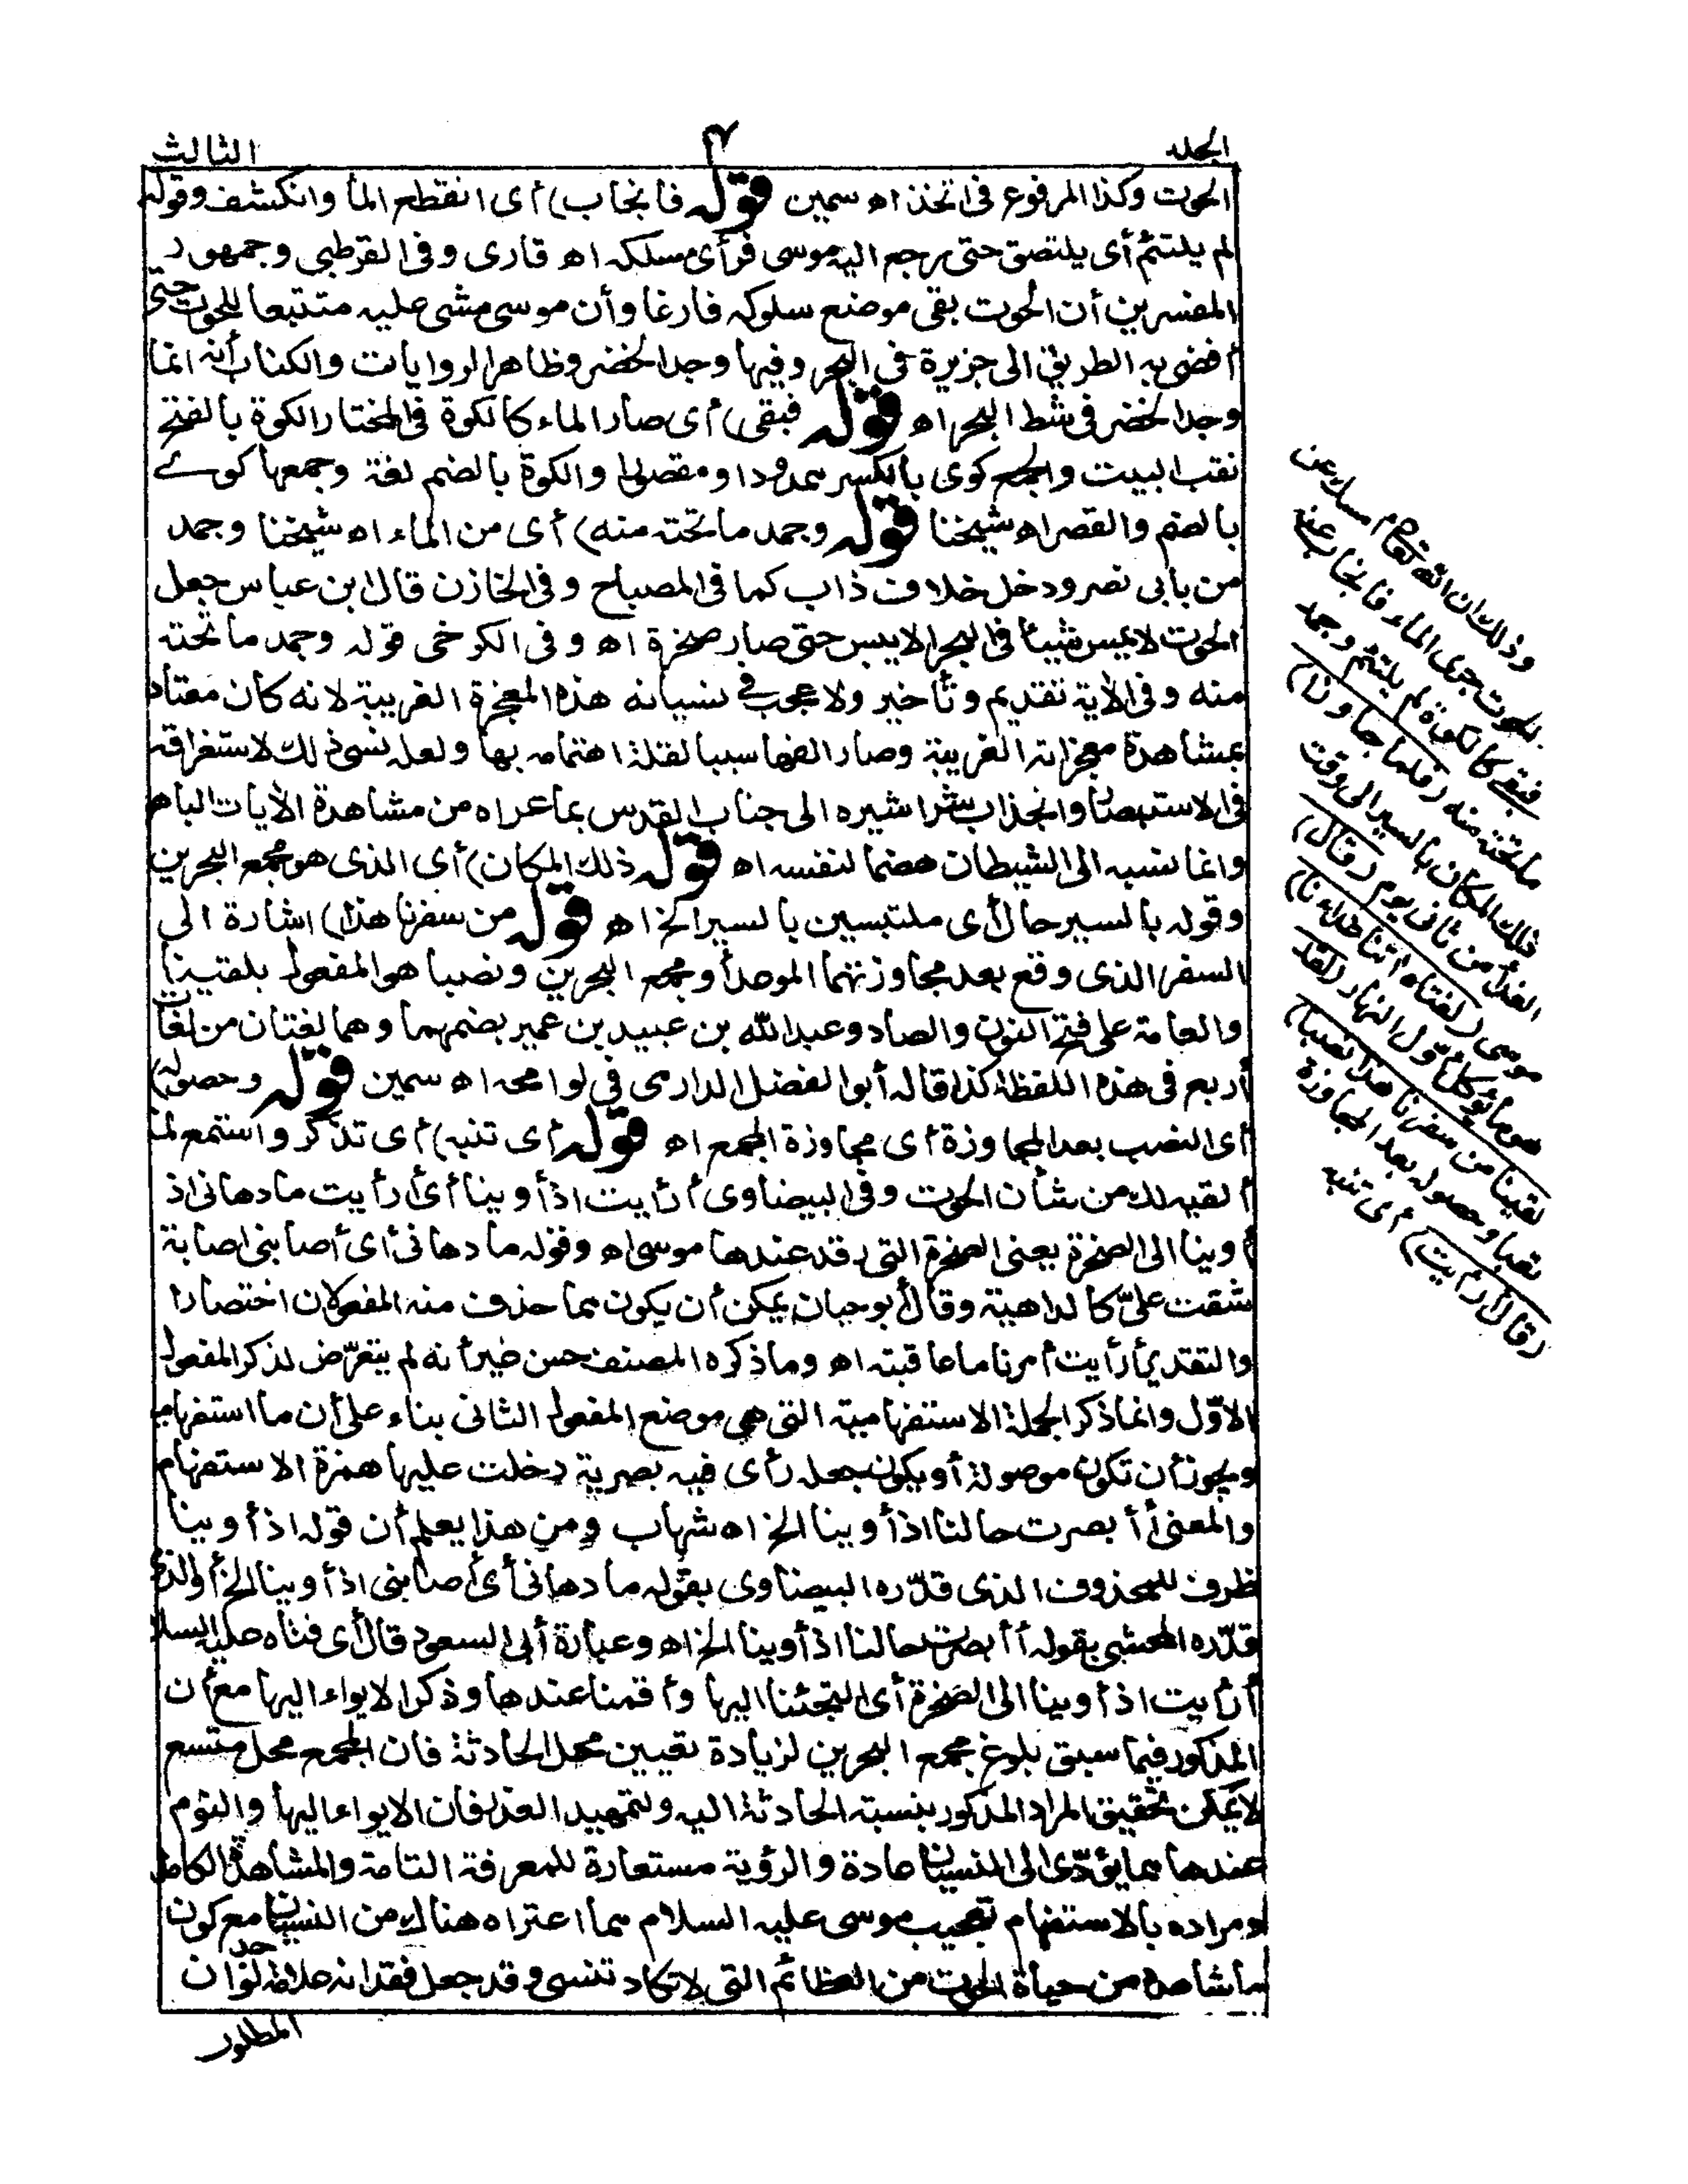 الجلد
٣
الثالث
الحوت وكذا المرفوع فى اتخذ اه سمين قوله فانجاب) أى انقطع الماء وانكشف وقوله
لم يلتئم أى يلتصق حتى رجع اليه موسى فرأى مسلكه اه قارى وفى القرطبي وجمهور
المفسرين أن الحوت بقى موضع سلوكه فارغا وأن موسى مشى عليه متتبعا للحوت حتى
أفضى به الطريق الى جزيرة فى البحر وفيها وجد الخضر وظاهر الروايات والكتاب أنه انما
وجد الخضر فى شط البحر اه قوله فبقى) أى صار الماء كالكوة فى المختار الكوة بالفتح
نقب البيت والجمع كوى بالكسر ممدودا ومقصورا والكوة بالضم لغة وجمعها كوى
بالضم والقصر اه شيخنا قوله وجمد ما تحته منه) أى من الماء اه شيخنا وجمد
من بابى نصر ودخل خلاف ذاب كما فى المصباح وفى الخازن قال ابن عباس جعل
الحوت لا يمس شيئا فى البحر الا يبس حتى صار صخرة اه وفى الكرخى قوله وجمد ما تحته
منه وفى الآية تقديم وتأخير ولا عجب فى نسيانه هذه المعجزة الغريبة لانه كان معتاد
بمشاهدة معجزاته الغريبة وصار الفها سببا لقلة اهتمامه بها ولعله نسى ذلك لاستغراقه
فى الاستبصار وانجذاب شراشيره الى جناب القدس بما عراه من مشاهدة الآيات الباهر
وانما نسبه الى الشيطان هضما لنفسه اه قوله ذلك المكان) أى الذى هو مجمع البحرين
وقوله بالسير حال أى ملتبسين بالسير الخ اه قوله من سفرنا هذا) اشارة الى
السفر الذى وقع بعد مجاوزتهما الموعد أو مجمع البحرين ونصبا هو المفعول بلقينا
والعامة على فتح النون والصاد وعبد الله بن عبيد بن عمير بضمهما وهما لغتان من لغات
أربع فى هذه اللفظة كذا قاله أبو الفضل الدارى فى لوامحه اه سمين قوله وحصوله)
أى النصب بعد المجاوزة أى مجاوزة المجمع اه قوله أى تنبه) أى تذكر واستمع لما
ألقيه لك من شأن الحوت وفى البيضاوى أرأيت اذ أوينا أى أرأيت ما دهانى اذ
أوينا الى الصخرة يعنى الصخرة التى رقد عندها موسى اه وقوله ما دهانى أى أصابنى اصابة
شقت علىّ كالداهية وقال أبو حيان يمكن أن يكون مما حذف منه المفعولان اختصارا
والتقدير أرأيت أمرنا ما عاقبته اه وما ذكره المصنف حسن خير أنه لم يتعرّض لذكر المفعول
الاوّل وانما ذكر الجملة الاستفهامية التى هى موضع المفعول الثانى بناء على أن ما استفهامية
ويجوز أن تكون موصولة أو يكون جعل رأى فيه بصرية دخلت عليها همزة الاستفهام
والمعنى أأبصرت حالنا اذ أوينا الخ اه شهاب ومن هذا يعلم أن قوله اذ أوينا
ظرف للمحذوف الذى قدّره البيضاوى بقوله ما دهانى أى أصابنى اذ أوينا الخ أو الذى
قدّره المحشى بقوله أأبصرت حالنا اذ أوينا الخ اه وعبارة أبى السعود قال أى فتاه عليه السلا
أرأيت اذ أوينا الى الصخرة أى التجئنا اليها وأقمنا عندها وذكر الايواء اليها مع أن
المذكور فيما سبق بلوغ مجمع البحرين لزيادة تعيين محل الحادثة فان المجمع محل متسع
لا يمكن تحقيق المراد المذكور بنسبة الحادثة اليه ولتمهيد العذر فان الايواء اليها والنوم
عندها مما يؤدّى الى النسيان عادة والرؤية مستعارة للمعرفة التامة والمشاهدة الكامل
ومراده بالاستفهام تعجيب موسى عليه السلام مما اعتراه هناك من النسيان مع كون
ما شاهده من حياة الحوت من العظائم التى لا تكاد تنسى وقد جعل فقدانه علامة لوجدان
المطلوب
وذلك ان الله تعالى أمسك عن
الحوت جرى الماء فانجاب عنه
فبقى كالكوة لم يلتئم وجمد
ما تحته منه (فلما جاوزا)
ذلك المكان بالسير الى وقت
الغداء من ثانى يوم (قال)
موسى (لفتاه آتنا غداءنا)
هو ما يؤكل أوّل النهار (لقد
لقينا من سفرنا هذا نصبا)
تعبا وحصوله بعد المجاوزة
(قال أرأيت) أى تنبه